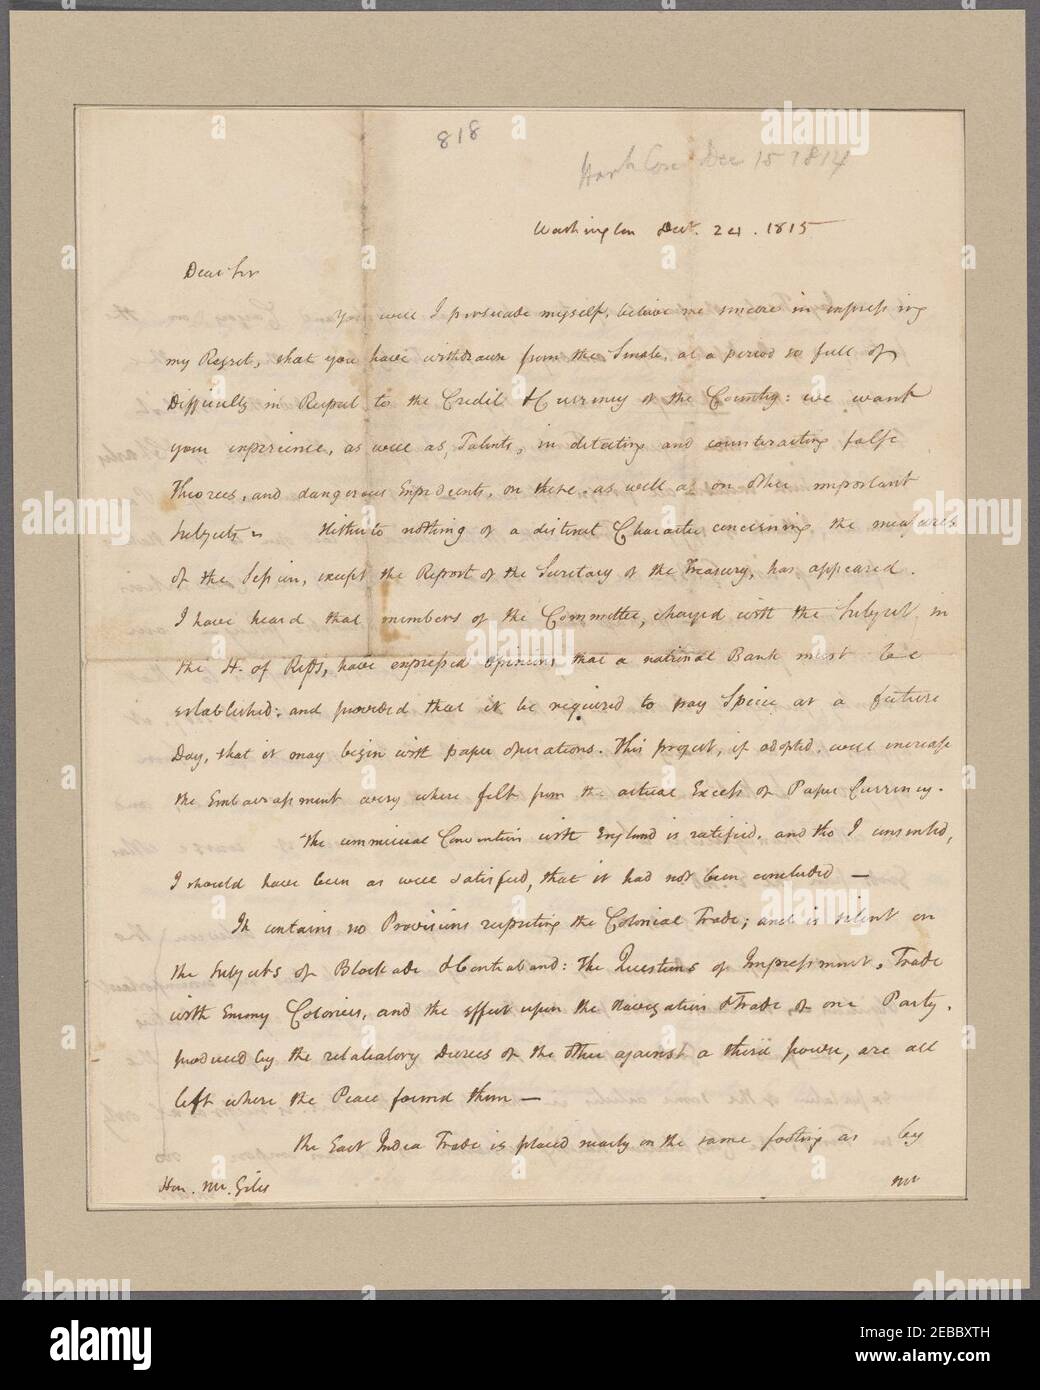 818
Dec 15 1814
Washington Decr. 24. 1815
Dear Sir
You will I persuade myself, believe me sincere in expressing
my Regret, that you have withdrawn from the Senate, at a period so full of
Difficulty in Respect to the Credit & Currency of the Country: we want
your experience, as well as Talents, in detecting and counteracting false
Theories, and dangerous Expedients, on these, as well as on other important
Subjects. Hitherto nothing of a distinct Character concerning the measures
of the Session, except the Report of the Secretary of the Treasury, has appeared.
I have heard that members of the Committee, charged with the Subject, in
the H. of Reps, have expressed opinions that a national Bank must be
established; and provided that it be required to pay Specie at a future
Day, that it may begin with paper operations. This project, if adopted, will increase
the Embarrassment every where felt from the actual Excess of Paper Currency.
The commercial Convention with England is ratified, and tho I consented,
I should have been as well satisfied, that it had not been concluded —
It contains no Provisions respecting the Colonial Trade; and is silent on
the Subjects of Blockade & Contraband: The Questions of Impressment, Trade
with Enemy Colonies, and the effect upon the Navigation & Trade, of one Party,
produced by the retaliatory Decrees of the other against a third power, are all
left where the Peace found them —
The East India Trade is placed nearly on the same footing as by
Hon. Mr. Giles
Mr
alamy
alamy
alamy
alamy
alamy
alamy
alamy
alamy
alamy
a
alamy
Image ID: 2EBBXTH
www.alamy.com